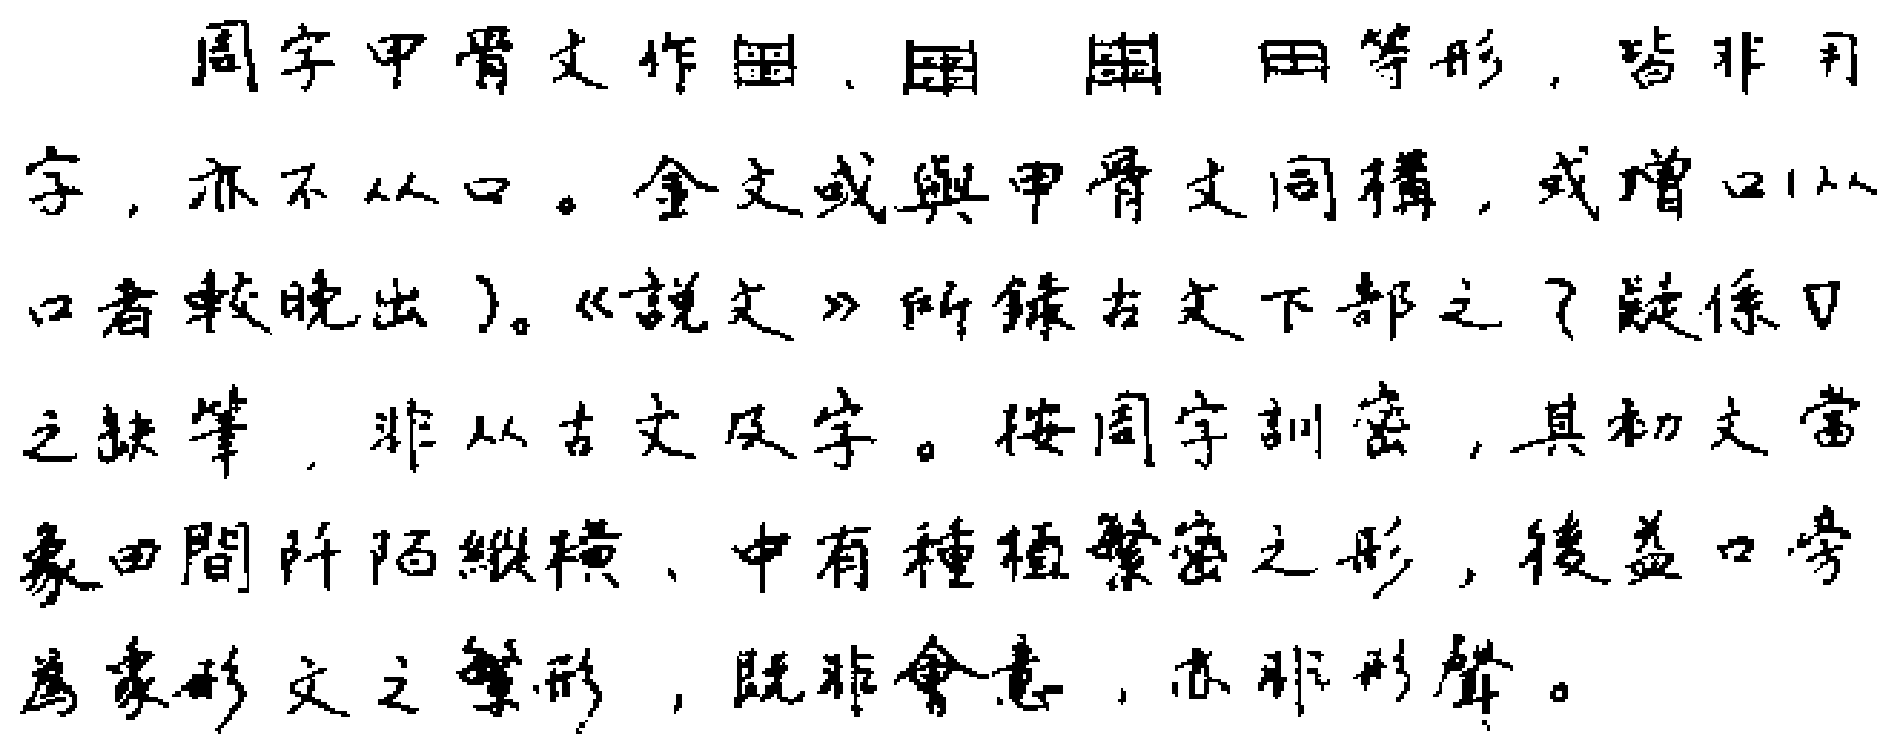 周字甲骨文作、等形,皆非用
字,亦不从口。金文或與甲骨文同構,或增口(从
口者較晚出)。《說文》所錄古文下部之了疑係∇
之缺筆,非从古文及字。按周字訓密,其初文當
象田間阡陌縱橫、中有種植繁密之形,後益口旁
為象形文之繁形,既非會意,亦非形聲。